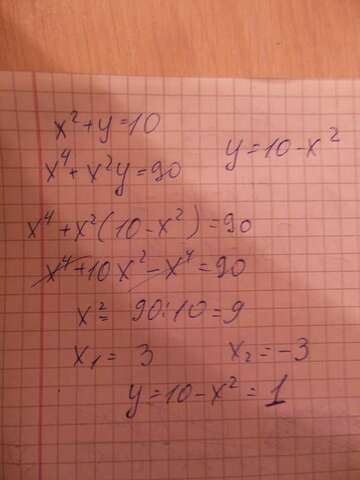 x² + y = 10
x⁴ + x²y = 90
y = 10 - x²
x⁴ + x²(10 - x²) = 90
x⁴ + 10x² - x⁴ = 90
x² = 90:10 = 9
x₁ = 3 x₂ = -3
y = 10 - x² = 1